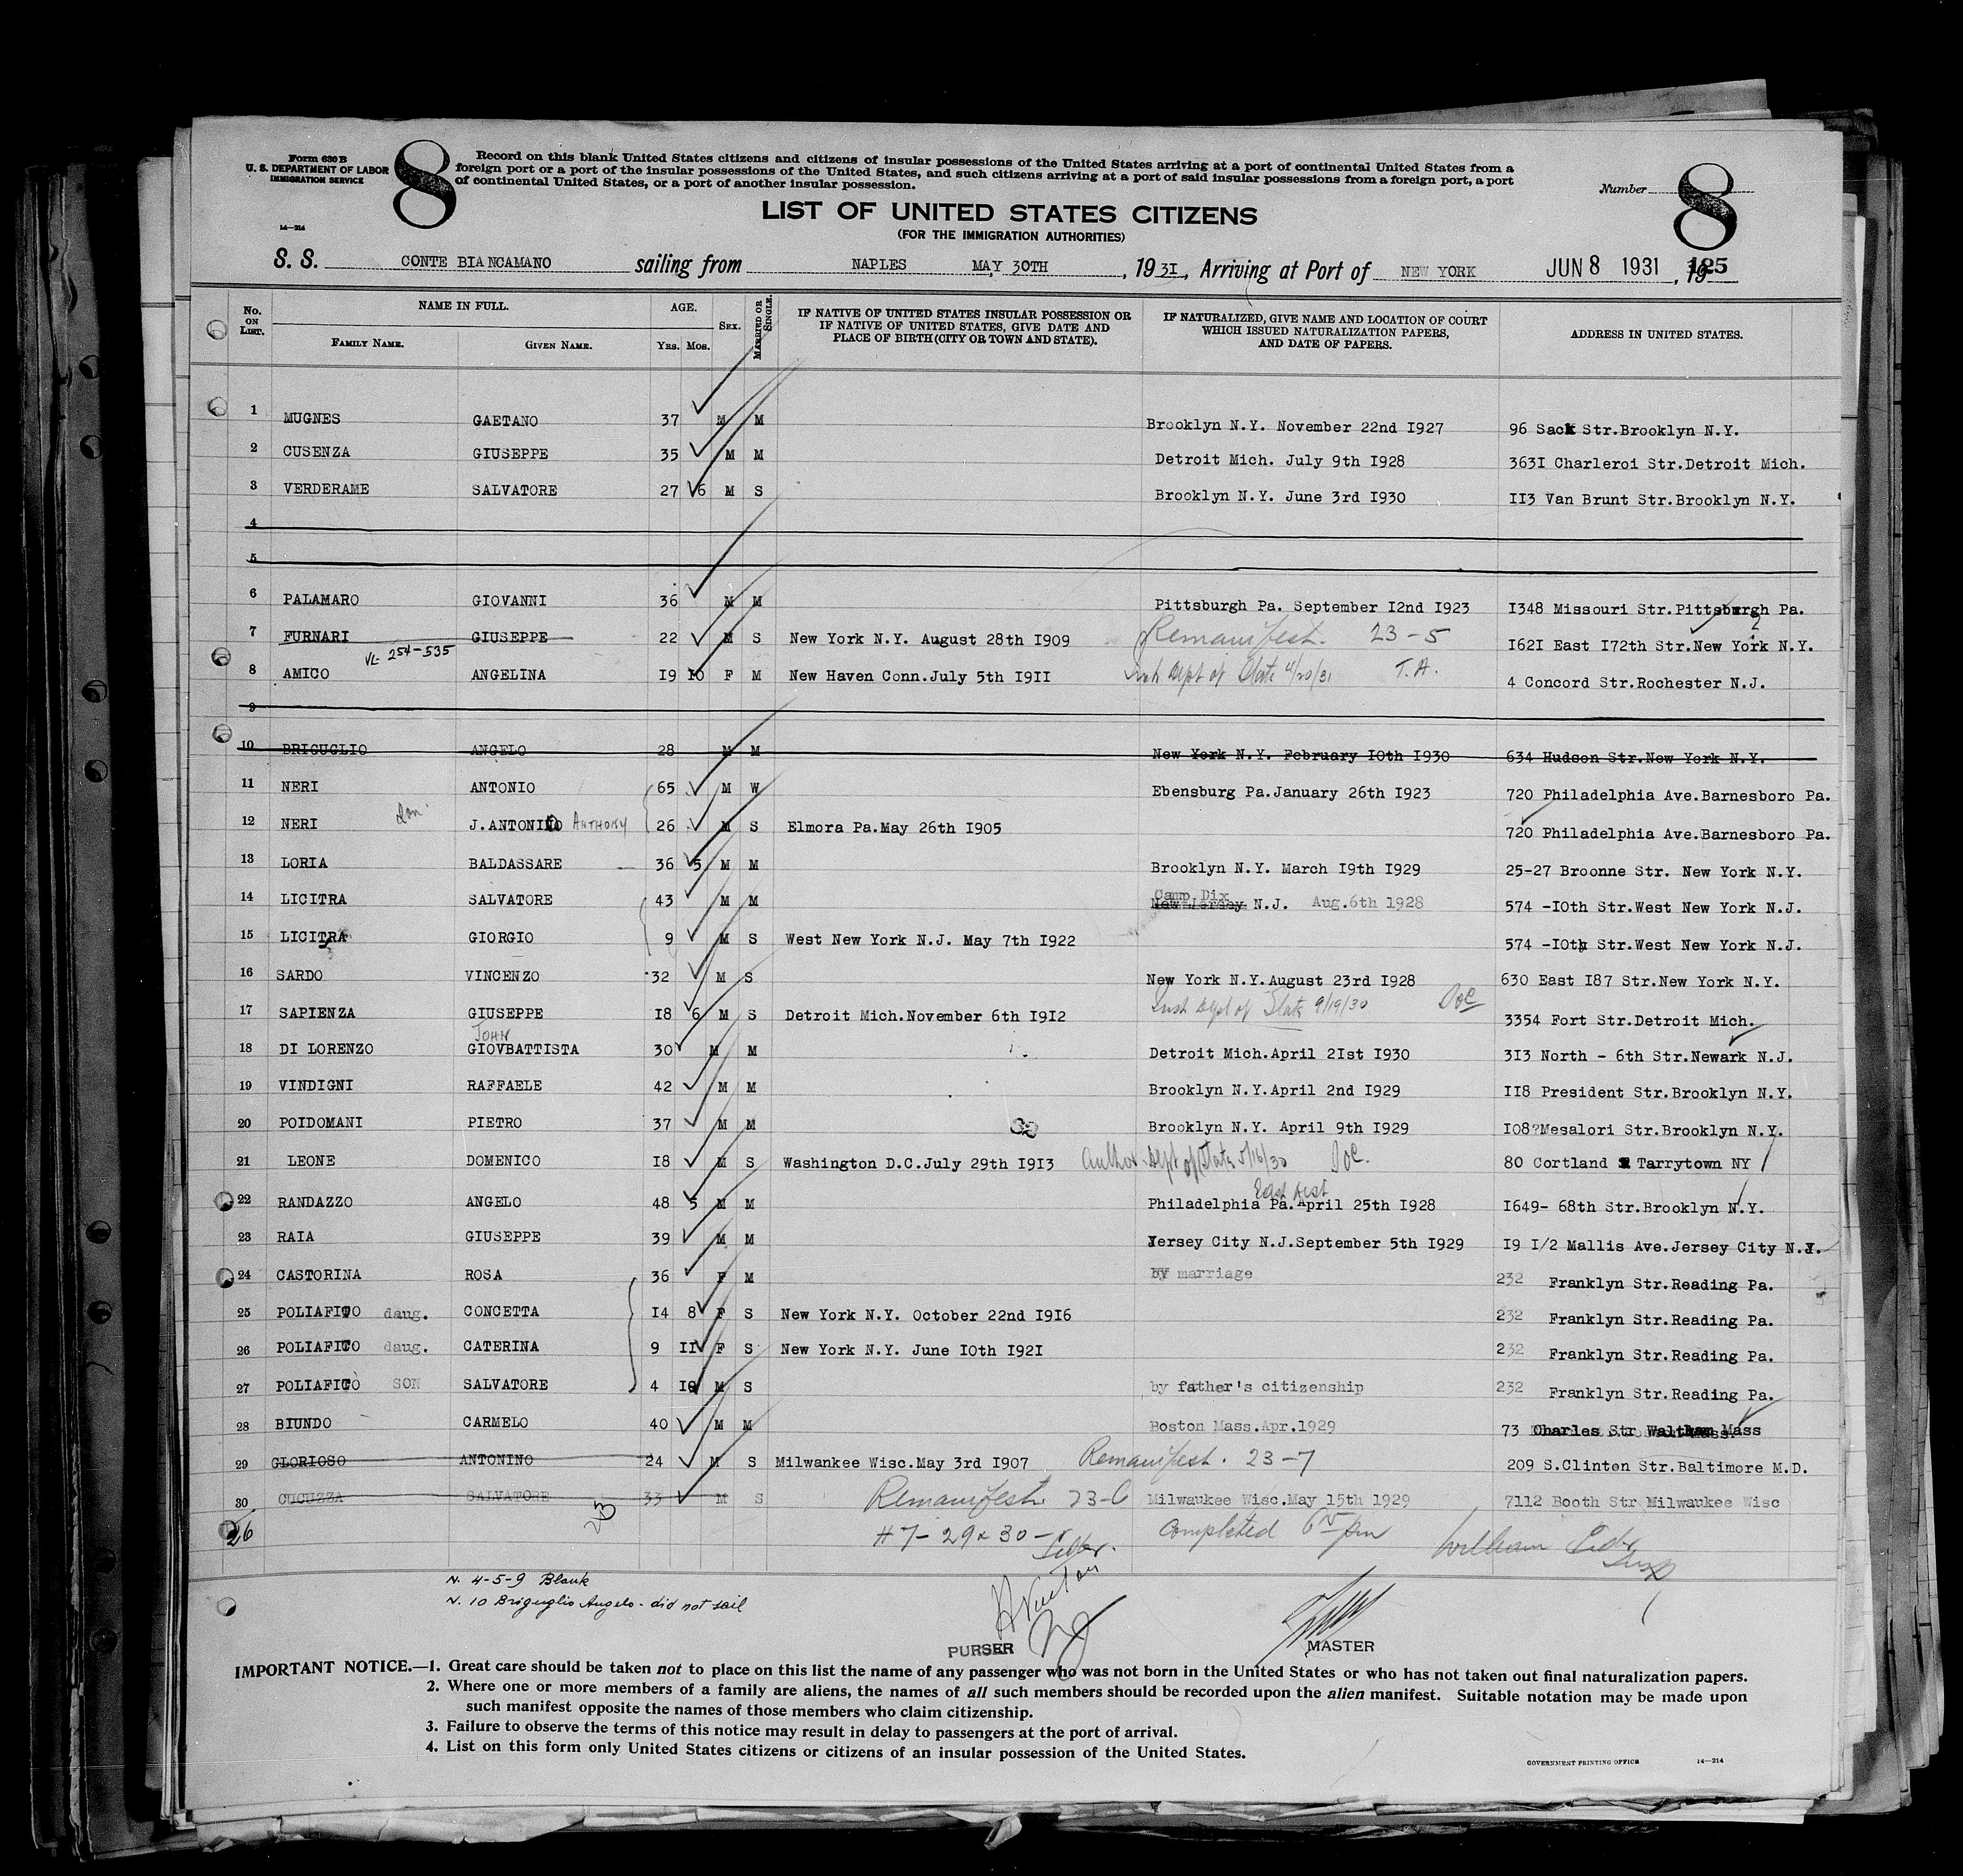 Form 630 B
U. S. DEPARTMENT OF LABOR
IMMIGRATION SERVICE
14—214
8
Record on this blank United States citizens and citizens of insular possessions of the United States arriving at a port of continental United States from a
foreign port or a port of the insular possessions of the United States, and such citizens arriving at a port of said insular possessions from a foreign port, a port
of continental United States, or a port of another insular possession.
Number 8
LIST OF UNITED STATES CITIZENS
(FOR THE IMMIGRATION AUTHORITIES)
S. S. CONTE BIANCAMANO sailing from NAPLES MAY 30TH, 193I, Arriving at Port of NEW YORK JUN 8 1931, 19 125
No. ON LIST. NAME IN FULL. FAMILY NAME. GIVEN NAME. AGE. YRS. MOS. SEX. MARRIED OR SINGLE. IF NATIVE OF UNITED STATES INSULAR POSSESSION OR IF NATIVE OF UNITED STATES, GIVE DATE AND PLACE OF BIRTH (CITY OR TOWN AND STATE). IF NATURALIZED, GIVE NAME AND LOCATION OF COURT WHICH ISSUED NATURALIZATION PAPERS, AND DATE OF PAPERS. ADDRESS IN UNITED STATES.
1 MUGNES GAETANO 37 M M Brooklyn N.Y. November 22nd I927 96 Sack Str.Brooklyn N.Y.
2 CUSENZA GIUSEPPE 35 M M Detroit Mich. July 9th I928 363I Charleroi Str.Detroit Mich.
3 VERDERAME SALVATORE 27 6 M S Brooklyn N.Y. June 3rd I930 II3 Van Brunt Str.Brooklyn N.Y.
4
5
6 PALAMARO GIOVANNI 36 M M Pittsburgh Pa. September I2nd I923 I348 Missouri Str.Pittsburgh Pa.
7 FURNARI GIUSEPPE 22 M S New York N.Y. August 28th I909 Remanifest. 23-5 I62I East I72th Str.New York N.Y.
VL 254-535
8 AMICO ANGELINA I9 I0 F M New Haven Conn.July 5th I9II Dept of State 4/20/31 T.A. 4 Concord Str.Rochester N.J.
9
10 BRIGUGLIO ANGELO 28 M M New York N.Y. February I0th I930 634 Hudson Str.New York N.Y.
11 NERI ANTONIO 65 M W Ebensburg Pa.January 26th I923 720 Philadelphia Ave.Barnesboro Pa.
12 NERI Son J.ANTONINO ANTHONY 26 M S Elmora Pa.May 26th I905 720 Philadelphia Ave.Barnesboro Pa.
13 LORIA BALDASSARE 36 5 M M Brooklyn N.Y. March I9th I929 25-27 Broonne Str. New York N.Y.
14 LICITRA SALVATORE 43 M M Camp Dix New Jersey N.J. Aug.6th 1928 574 -I0th Str.West New York N.J.
15 LICITRA GIORGIO 9 M S West New York N.J. May 7th I922 574 -I0th Str.West New York N.J.
16 SARDO VINCENZO 32 M S New York N.Y.August 23rd I928 630 East I87 Str.New York N.Y.
17 SAPIENZA GIUSEPPE I8 6 M S Detroit Mich.November 6th I9I2 Dept of State 9/19/30 Doc 3354 Fort Str.Detroit Mich.
JOHN
18 DI LORENZO GIOVBATTISTA 30 M M Detroit Mich.April 2Ist I930 3I3 North - 6th Str.Newark N.J.
19 VINDIGNI RAFFAELE 42 M M Brooklyn N.Y.April 2nd I929 II8 President Str.Brooklyn N.Y.
20 POIDOMANI PIETRO 37 M M Brooklyn N.Y. April 9th I929 I08?Mesalori Str.Brooklyn N.Y.
21 LEONE DOMENICO I8 M S Washington D.C.July 29th I9I3 Author. Dept of State 5/16/30 Doc. 80 Cortland Tarrytown NY
22 RANDAZZO ANGELO 48 5 M M East Dist Philadelphia Pa.April 25th I928 I649- 68th Str.Brooklyn N.Y.
23 RAIA GIUSEPPE 39 M M Yersey City N.J.September 5th I929 I9 I/2 Mallis Ave.Jersey City N.J.
24 CASTORINA ROSA 36 F M By marriage 232 Franklyn Str.Reading Pa.
25 POLIAFITO daug. CONCETTA I4 8 F S New York N.Y. October 22nd I9I6 232 Franklyn Str.Reading Pa.
26 POLIAFITO daug. CATERINA 9 II F S New York N.Y. June I0th I92I 232 Franklyn Str.Reading Pa.
27 POLIAFITO SON SALVATORE 4 I0 M S by father's citizenship 232 Franklyn Str.Reading Pa.
28 BIUNDO CARMELO 40 M M Boston Mass.Apr.1929 73 Charles Str Waltham Mass
29 GLORIOSO ANTONINO 24 M S Milwankee Wisc.May 3rd I907 Remanifest. 23-7 209 S.Clinton Str.Baltimore M.D.
30 CUCUZZA SALVATORE 33 M S Remanifest 23-6 Milwaukee Wisc.May 15th 1929 7112 Booth Str Milwaukee Wisc
26 #7-29 & 30- completed 6 pm William Insp
N. 4-5-9 Blank
N. 10 Briguglio Angelo - did not sail
PURSER MASTER
IMPORTANT NOTICE.—1. Great care should be taken not to place on this list the name of any passenger who was not born in the United States or who has not taken out final naturalization papers.
2. Where one or more members of a family are aliens, the names of all such members should be recorded upon the alien manifest. Suitable notation may be made upon
such manifest opposite the names of those members who claim citizenship.
3. Failure to observe the terms of this notice may result in delay to passengers at the port of arrival.
4. List on this form only United States citizens or citizens of an insular possession of the United States.
GOVERNMENT PRINTING OFFICE 14—214